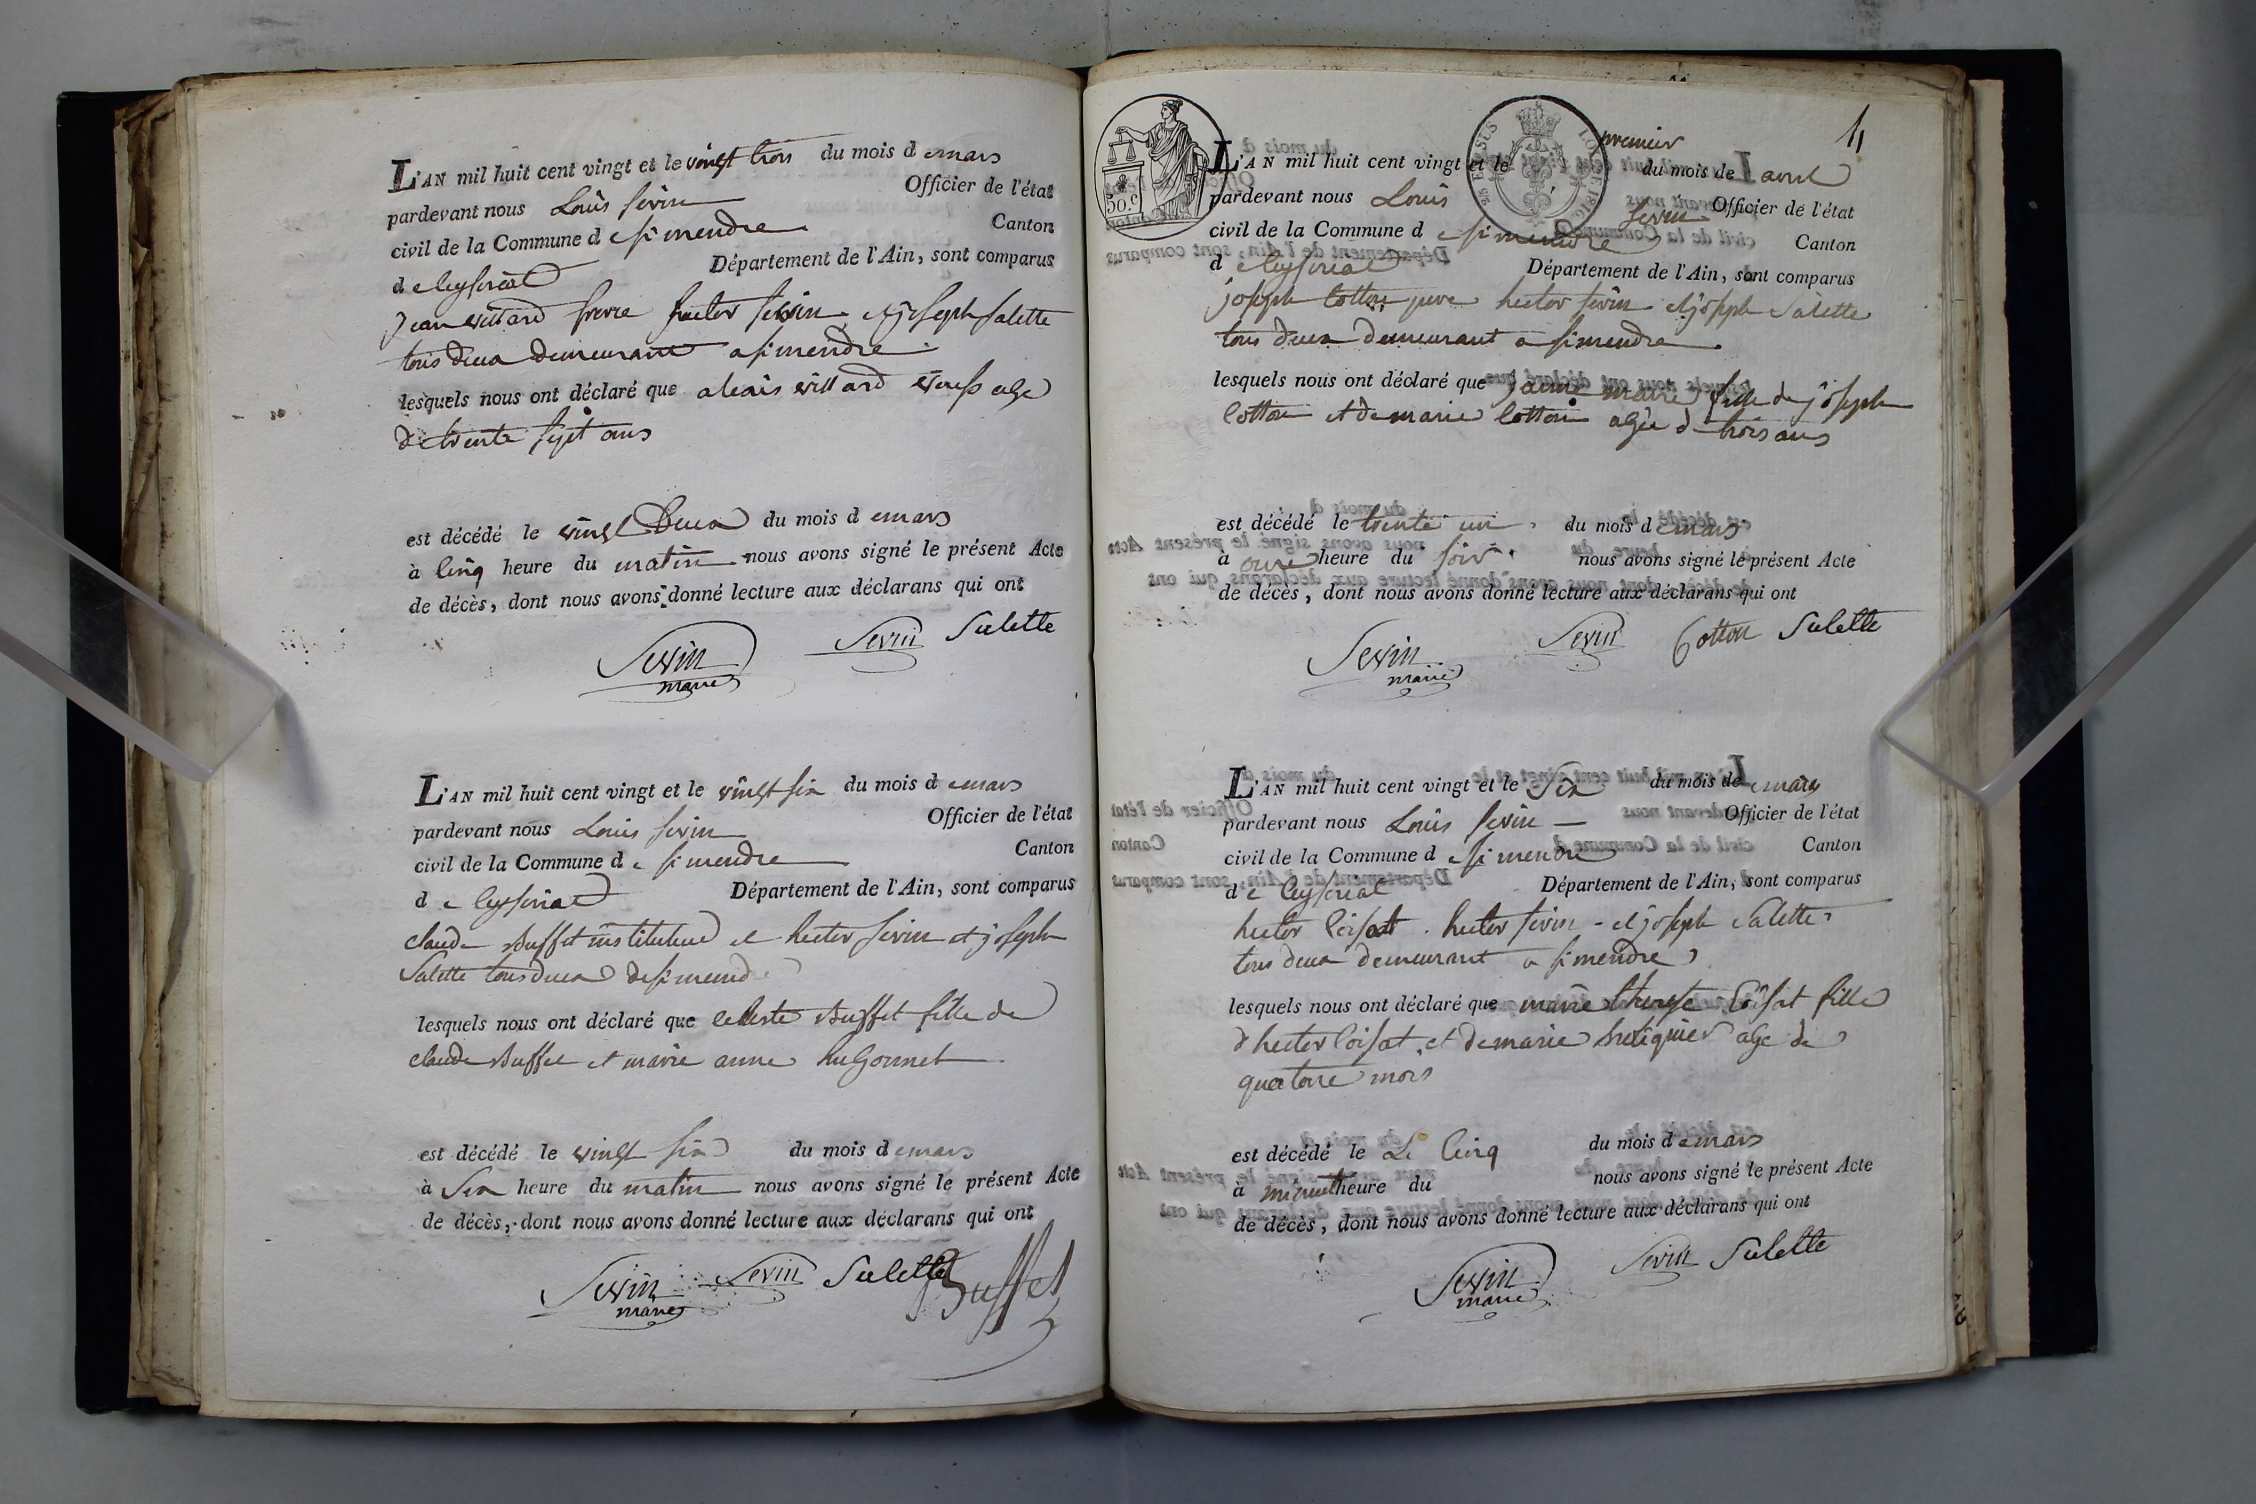 L'AN mil huit cent vingt et le vingt trois du mois d e mars
pardevant nous Louis sevin Officier de l'état
civil de la Commune d e simendre Canton
d e ceyseriat Département de l'Ain, sont comparus
jean villard frere hector sevin et joseph salette
tous deux demeurant a simendre
lesquels nous ont déclaré que alexis villard age
de trente sept ans
est décédé le vingt deux du mois d e mars
à cinq heure du matin nous avons signé le présent Acte
de décès, dont nous avons donné lecture aux déclarans qui ont
Sevin Sevin Salette
maire
L'AN mil huit cent vingt et le vingt six du mois d e mars
pardevant nous Louis sevin Officier de l'état
civil de la Commune d e simendre Canton
d e ceyseriat Département de l'Ain, sont comparus
claude Buffet instituteur et hector sevin et joseph
salette tous deux de simendre
lesquels nous ont déclaré que celeste Buffet fille de
claude Buffet et marie anne hugonnet
est décédé le vingt six du mois d e mars
à six heure du matin nous avons signé le présent Acte
de décès, dont nous avons donné lecture aux déclarans qui ont
Sevin Sevin Salette Buffet
maire
11
50.c
premier
L'AN mil huit cent vingt et le du mois de avril
pardevant nous Louis sevin Officier de l'état
civil de la Commune d e simendre Canton
d e ceyseriat Département de l'Ain, sont comparus
joseph cotton pere hector sevin et joseph salette
tous deux demeurant a simendre
lesquels nous ont déclaré que marie fille de joseph
cotton et de marie cotton agée de trois ans
est décédé le trente un du mois d e mars
à onze heure du soir nous avons signé le présent Acte
de décès, dont nous avons donné lecture aux déclarans qui ont
Sevin Sevin Cotton Salette
maire
L'AN mil huit cent vingt et le six du mois de mars
pardevant nous Louis sevin Officier de l'état
civil de la Commune d e simendre Canton
d e ceyseriat Département de l'Ain, sont comparus
hector loisat hector sevin et joseph salette
tous deux demeurant a simendre
lesquels nous ont déclaré que marie therese loisat fille
d hector loisat et de marie age de
quatorze mois
est décédé le Le cinq du mois d e mars
à minuit heure du nous avons signé le présent Acte
de décès, dont nous avons donné lecture aux déclarans qui ont
Sevin Sevin Salette
maire